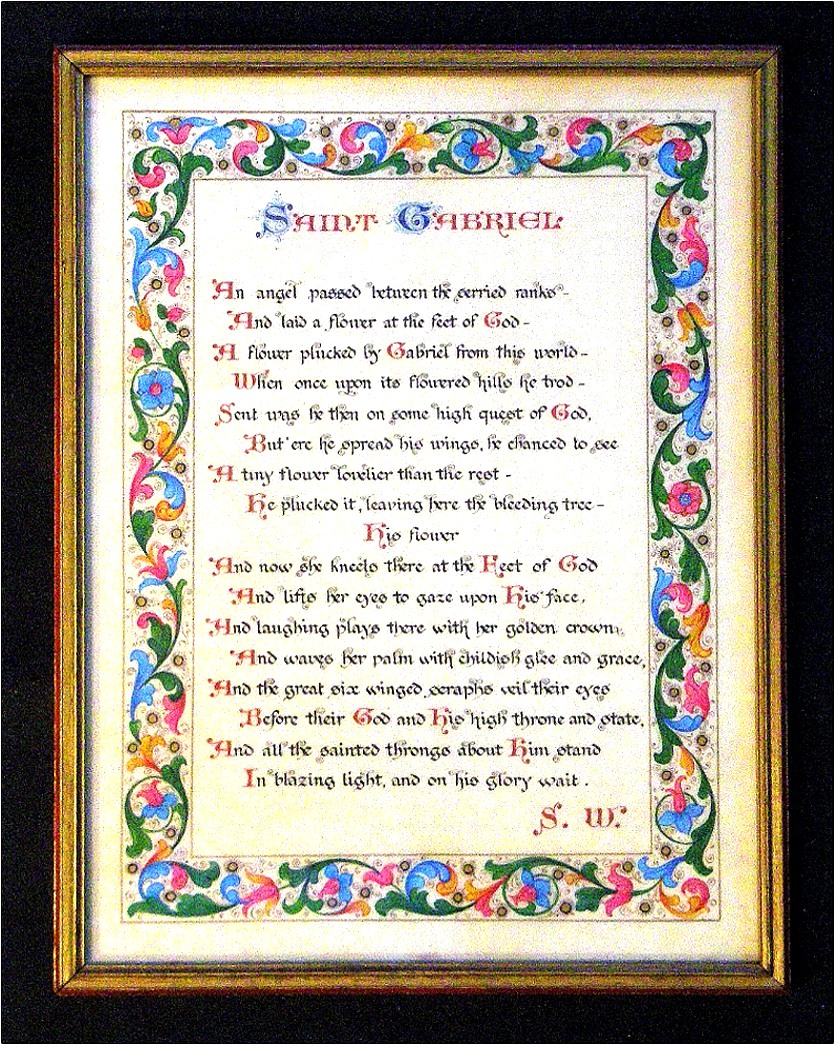 SAINT GABRIEL
An angel passed between the serried ranks -
And laid a flower at the feet of God -
A flower plucked by Gabriel from this world -
When once upon its flowered hills he trod -
Sent was he then on some high quest of God,
But 'ere he spread his wings, he chanced to see
A tiny flower lovelier than the rest -
He plucked it, leaving here the bleeding tree -
His flower
And now she kneels there at the Feet of God
And lifts her eyes to gaze upon His face,
And laughing plays there with her golden crown,
And waves her palm with childish glee and grace,
And the great six winged seraphs veil their eyes
Before their God and His high throne and state,
And all the sainted throngs about Him stand
In blazing light, and on his glory wait.
S. W.